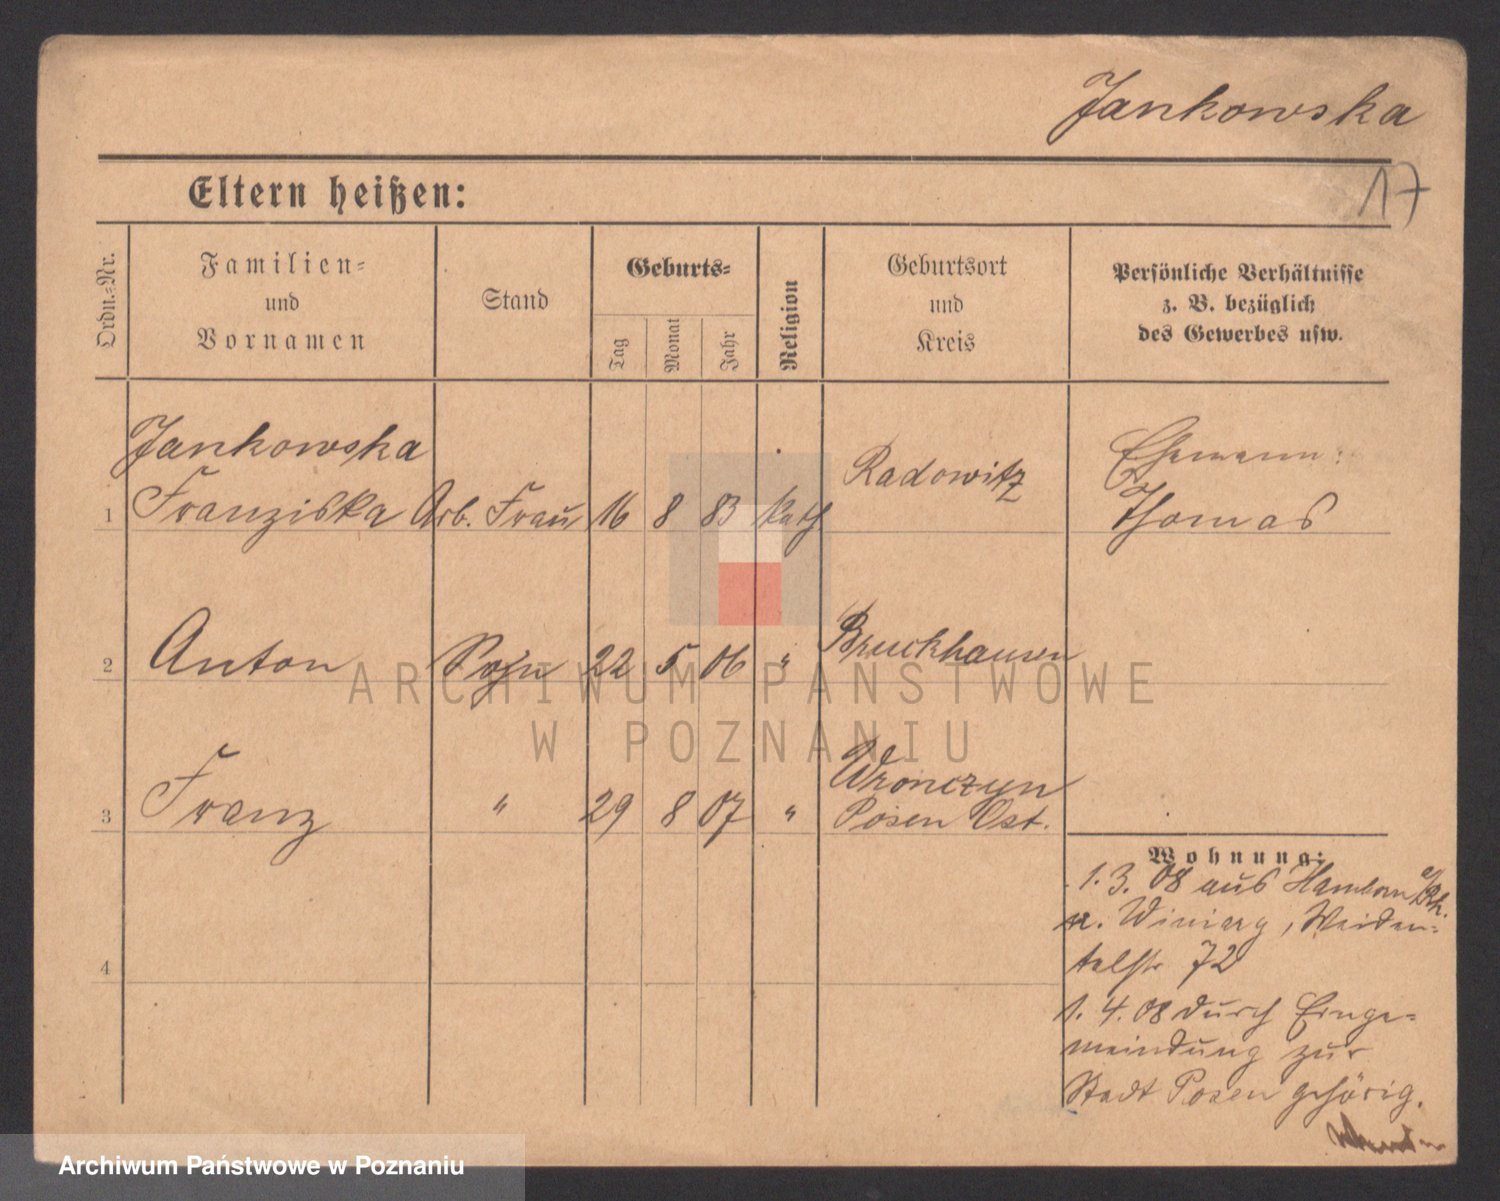 Jankowska
17
Eltern heißen:
Ordn.-Nr.
Familien-
und
Vornamen
Stand
Geburts-
Tag
Monat
Jahr
Religion
Geburtsort
und
Kreis
Persönliche Verhältnisse
z. B. bezüglich
des Gewerbes usw.
Jankowska
1 Franziska Arb. Frau 16 8 83 kath Radowitz Ehemann:
Thomas
2 Anton Sohn 22 5 06 " Bruckhausen
3 Franz " 29 8 07 " Wronczyn
Posen Ost.
4
Wohnung:
1. 3. 08 aus Hamborn a/Rh.
n. Winiary, Weiden-
talstr 72
1. 4. 08 durch Einge-
meindung zur
Stadt Posen gehörig.
ARCHIWUM PAŃSTWOWE
W POZNANIU
Archiwum Państwowe w Poznaniu